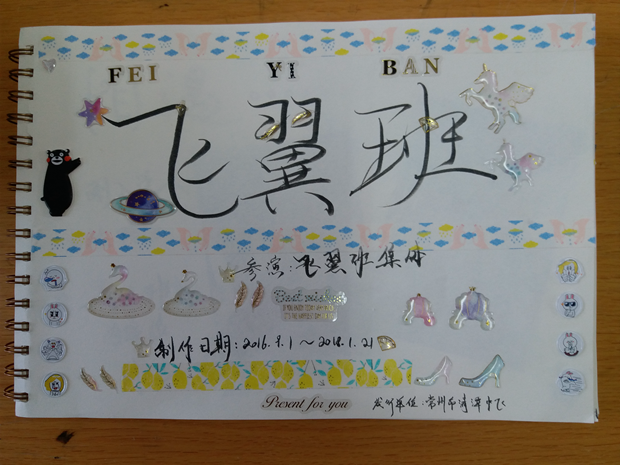 FEI YI BAN
飞翼班
参演：飞翼班集体
Best wishes
制作日期：2016.9.1～2018.1.21
Present for you
发行单位：常州市清潭中飞